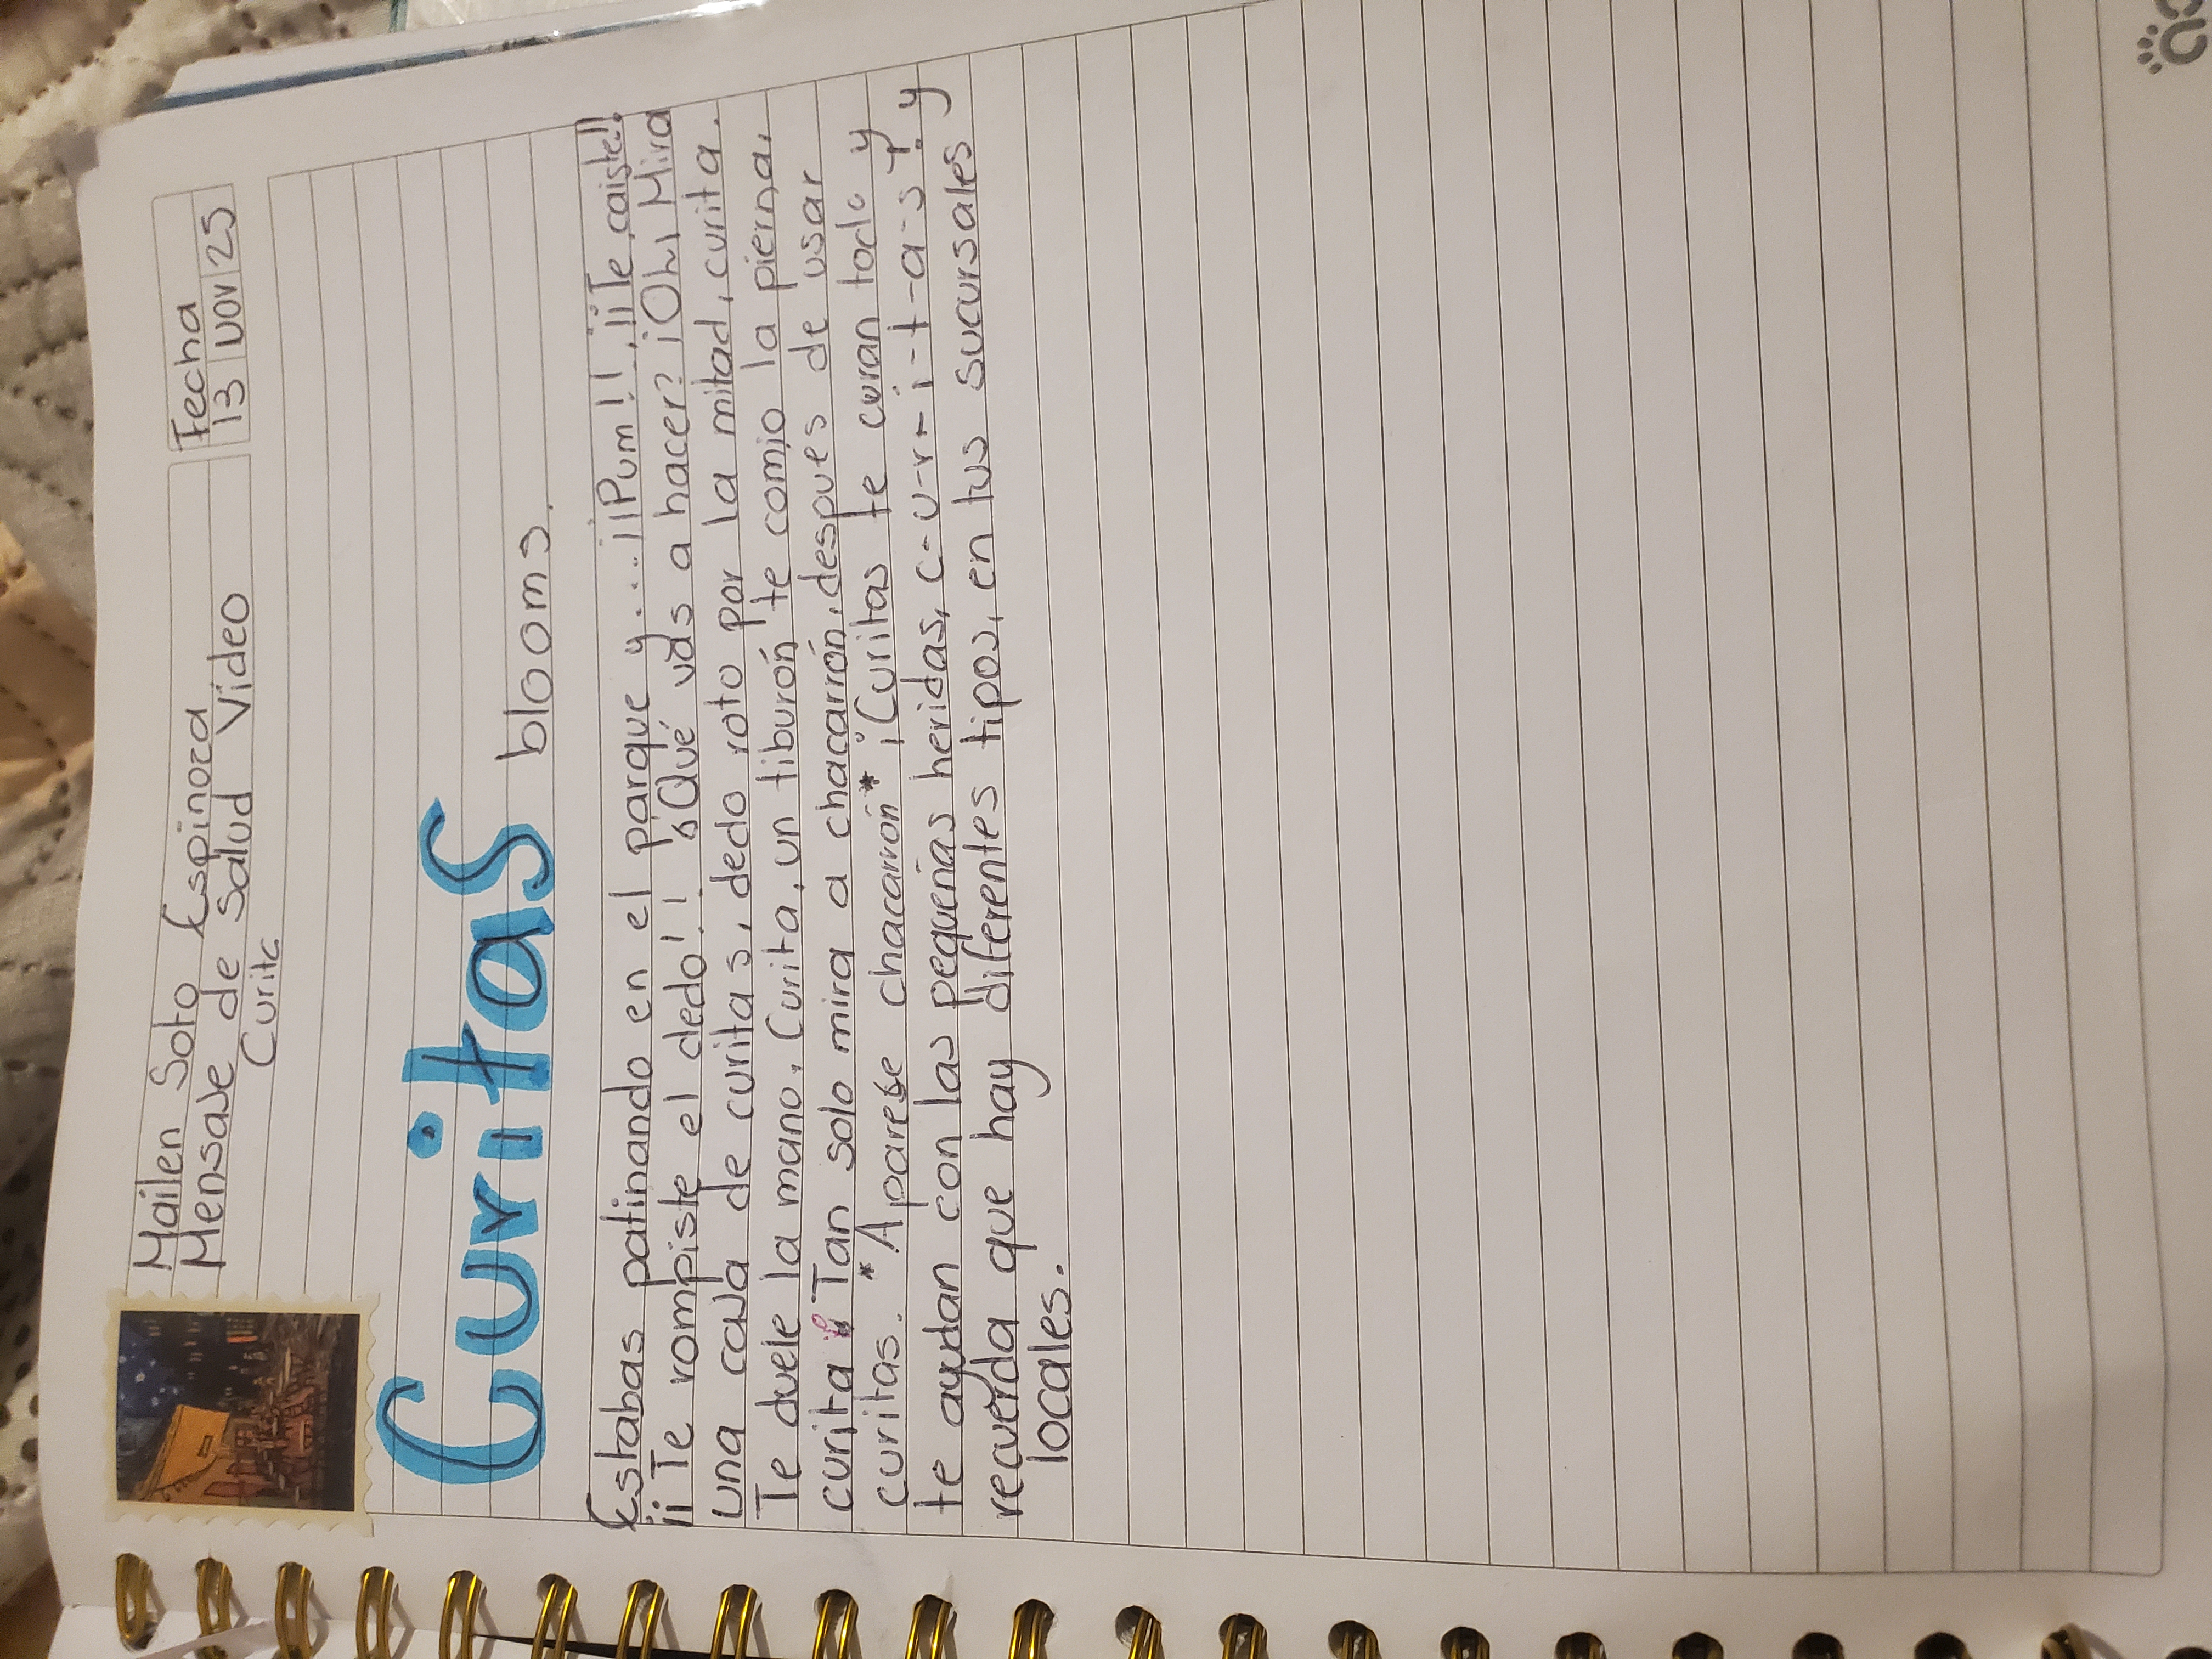 Mailen Soto Espinoza
Fecha
Mensaje de Salud Video
13 NOV 25
Curita
Curitas
blooms.
Estabas patinando en el parque y....¡¡Pum!! ¡¡Te caiste!!
¡¡Te rompiste el dedo!! ¿Qué vas a hacer? ¡Oh, Mira
una caja de curitas, dedo roto por la mitad, curita.
Te duele la mano, Curita, un tiburón te comio la pierna,
curita y Tan solo mira a chacarrón, despues de usar
curitas. *Aparese chacarrón* ¡Curitas te curan todo y
te ayudan con las pequeñas heridas, c-u-r-i-t-a-s y
recuerda que hay diferentes tipos, en tus sucursales y
locales.